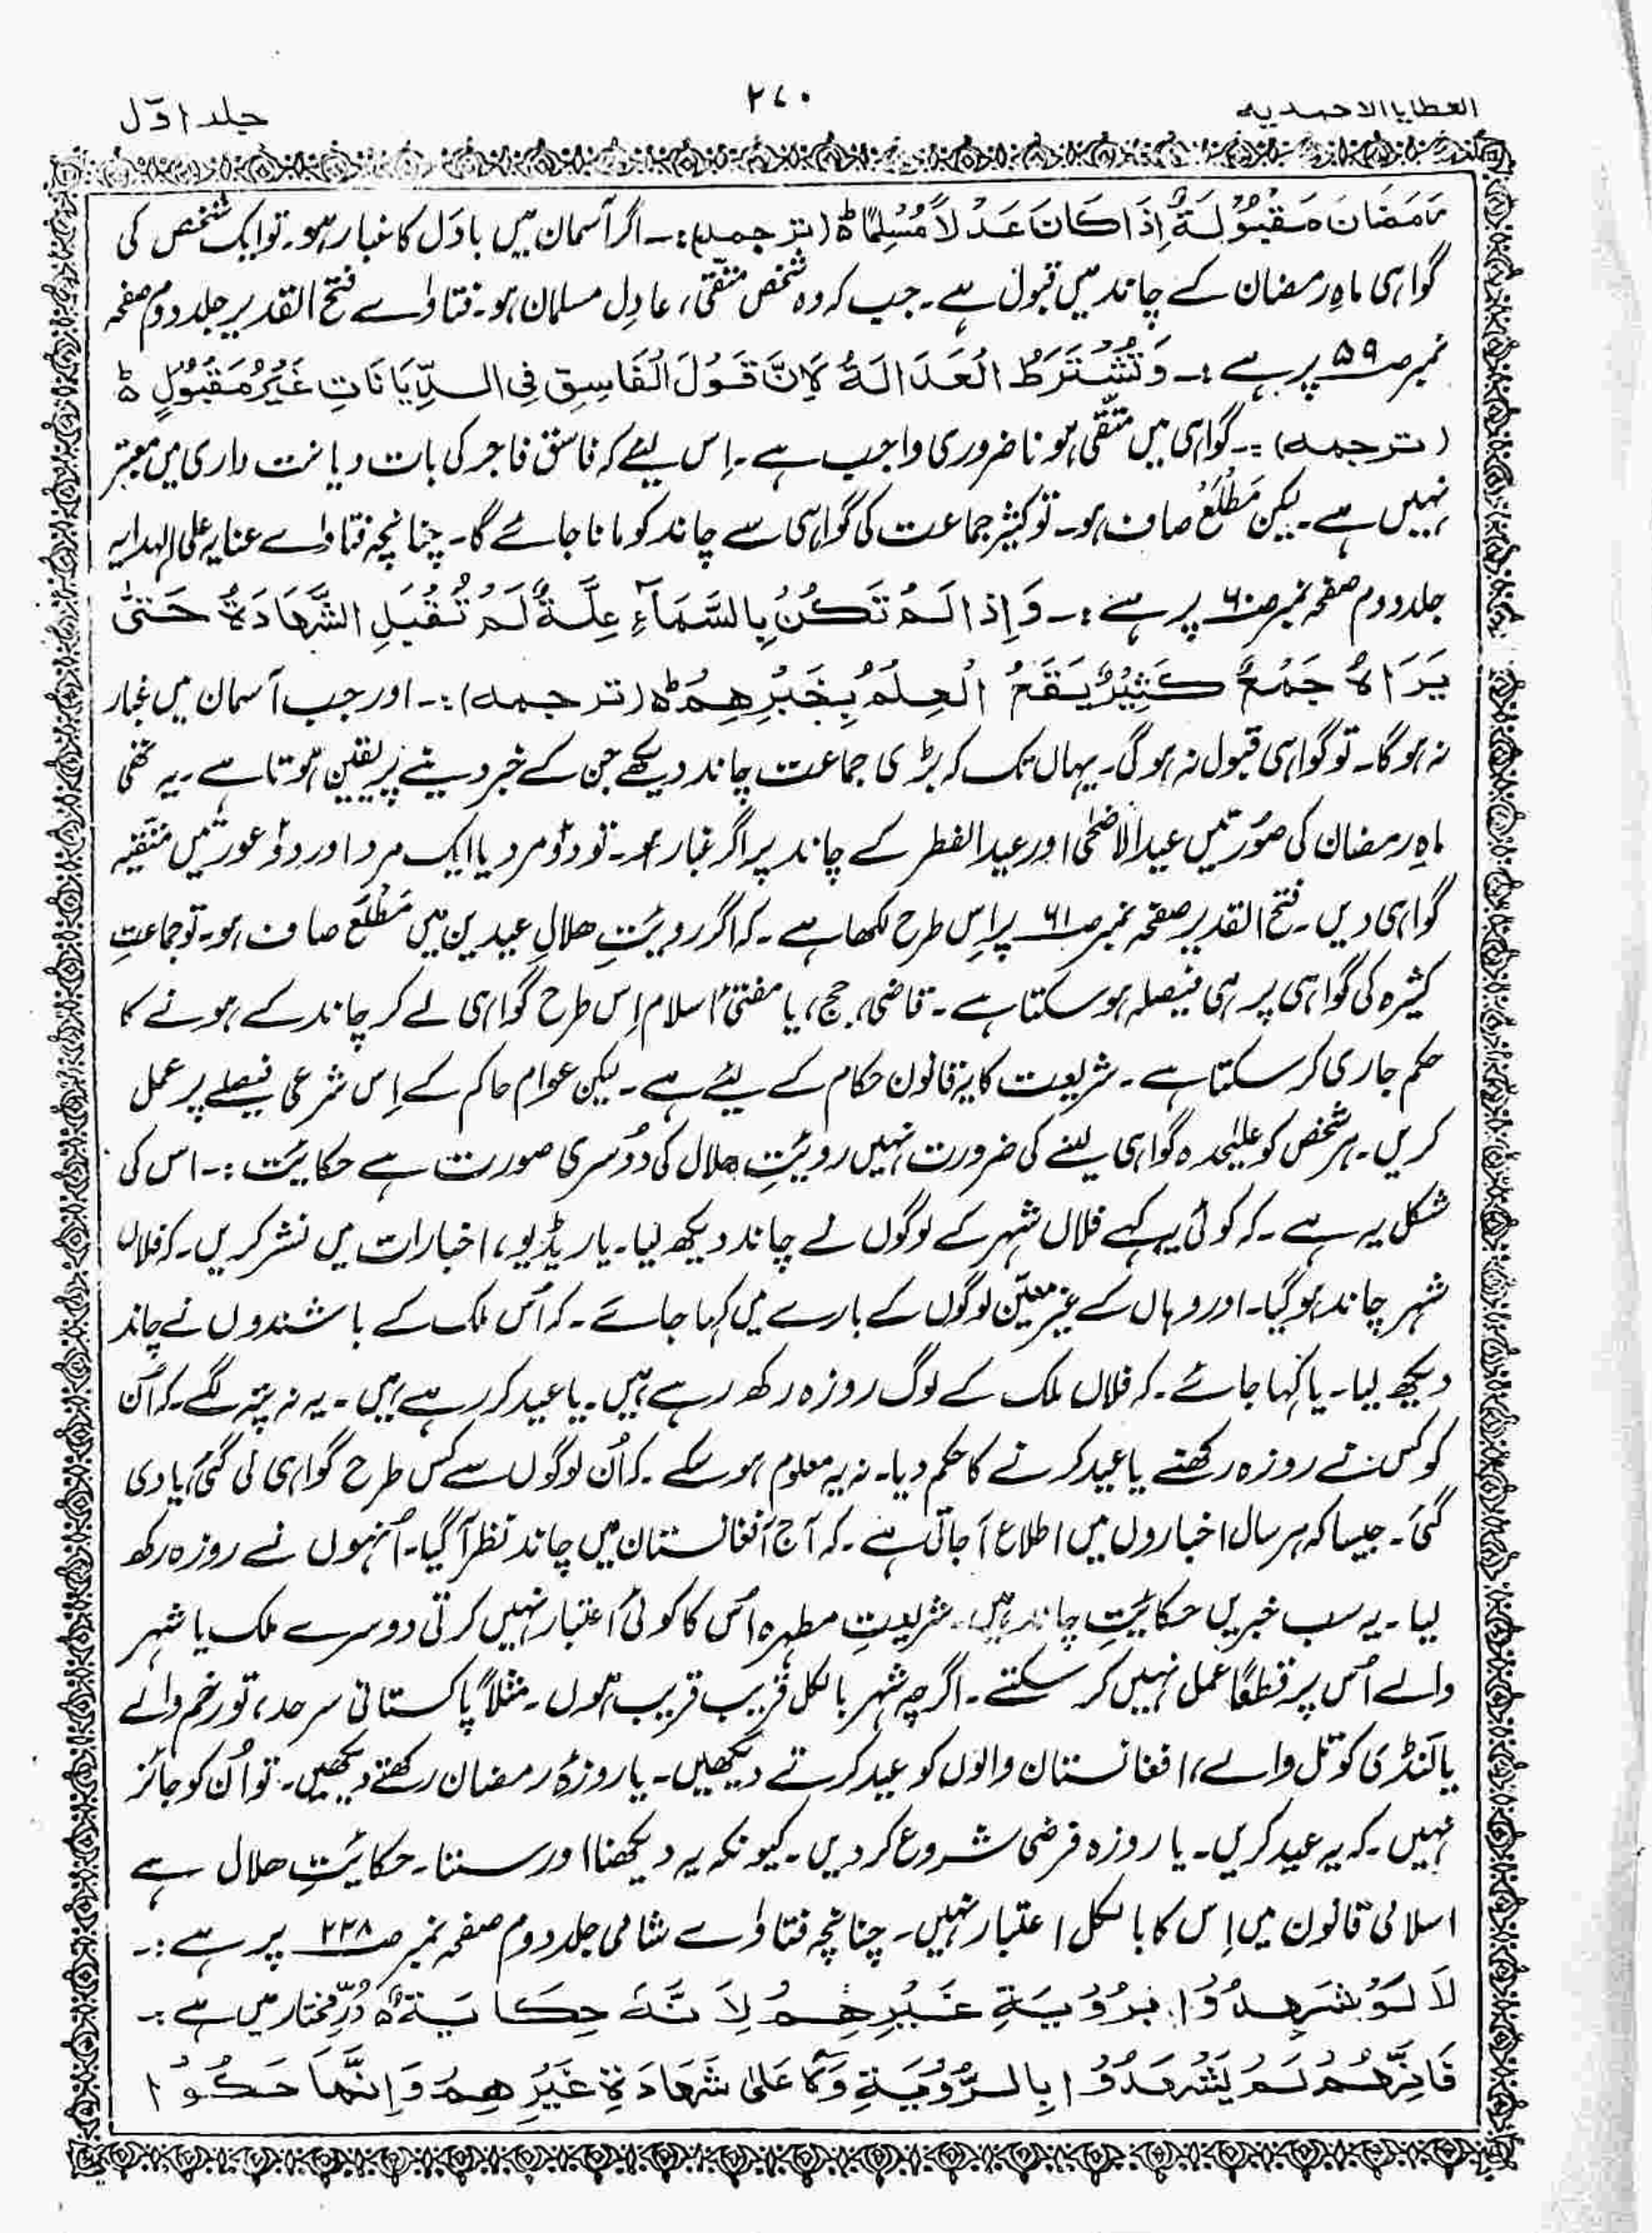 العطایا الاحمدیه
۲۷۰
جلد اوّل
رَمَضَانَ مَقْبُوْلَةٌ اِذَا كَانَ عَدْلاً مُسْلِمًا ہ (ترجمہ):۔ اگر آسمان میں بادَل کا غبار ہو۔ تو ایک شخص کی
گواہی ماہِ رمضان کے چاند میں قبول ہے۔ جب کہ وہ شخص متقی، عادِل مسلمان ہو۔ فتاوٰے فتح القدیر جلد دوم صفحہ
نمبر صـ۵۹ پر ہے :۔ وَتُشْتَرَطُ الْعَدَالَةُ لِاَنَّ قَوْلَ الْفَاسِقِ فِی الدِّیَانَاتِ غَیْرُ مَقْبُوْلٍ ہ
(ترجمہ) :۔ گواہی میں متقّی ہونا ضروری واجب ہے۔ اِس لیئے کہ فاسق فاجر کی بات دیانت داری میں معتبر
نہیں ہے۔ لیکن مَطْلَعْ صاف ہو۔ تو کثیر جماعت کی گواہی سے چاند کو مانا جائے گا۔ چنانچہ فتاواے عنایہ علی الہدایہ
جلد دوم صفحہ نمبر صـ۶۰ پر ہے :۔ وَاِذَا لَمْ تَكُنْ بِالسَّمَآءِ عِلَّةٌ لَمْ تُقْبَلِ الشَّهَادَةُ حَتّٰى
يَرَاهُ جَمْعٌ كَثِيْرٌ يَقَعُ الْعِلْمُ بِخَبْرِهِمْ ہ (ترجمہ) :۔ اور جب آسمان میں غبار
نہ ہوگا۔ تو گواہی قبول نہ ہوگی۔ یہاں تک کہ بڑی جماعت چاند دیکھے جن کے خبر دینے پر یقین ہوتا ہے۔ یہ تھی
ماہِ رمضان کی صوُرتیں عیدالاضحٰی اور عیدالفطر کے چاند پر اگر غبار ہو۔ تو دوْ مرد یا ایک مرد اور دوْ عورتیں متقیہ
گواہی دیں۔ فتح القدیر صفحہ نمبر صـ۶۱ پر اِس طرح لکھا ہے۔ کہ اگر رویَتِ ھلالِ عیدین میں مَطْلَع صاف ہو۔ تو جماعتِ
کثیرہ کی گواہی پر ہی فیصلہ ہو سکتا ہے۔ قاضی، جج، یا مفتیٔ اسلام اِس طرح گواہی لے کر چاند کے ہونے کا
حکم جاری کر سکتا ہے۔ شریعت کا یہ قانون حکام کے لیئے ہے۔ لیکن عوام حاکم کے اِس شرعی فیصلے پر عمل
کریں۔ ہر شخص کو علیٰحدہ گواہی لینے کی ضرورت نہیں رویَتِ ھلال کی دوُسری صورت ہے حکایَت :۔ اس کی
شکل یہ ہے۔ کہ کوئی یہ کہے فلاں شہر کے لوگوں نے چاند دیکھ لیا۔ یا ریڈیو، اخبارات میں نشر کریں۔ کہ فلاں
شہر چاند ہو گیا۔ اور وہاں کے غیر معیّن لوگوں کے بارے میں کہا جائے۔ کہ اُس ملک کے باشندوں نے چاند
دیکھ لیا۔ یا کہا جائے۔ کہ فلاں ملک کے لوگ روزہ رکھ رہے ہیں۔ یا عید کر رہے ہیں۔ یہ نہ پتہ لگے۔ کہ اُن
کو کس نے روزہ رکھنے یا عید کرنے کا حکم دیا۔ نہ یہ معلوم ہو سکے۔ کہ اُن لوگوں سے کس طرح گواہی لی گئی یا دی
گئی۔ جیسا کہ ہر سال اخباروں میں اطلاع آ جاتی ہے۔ کہ آج افغانستان میں چاند نظر آ گیا۔ اُنہوں نے روزہ رکھ
لیا۔ یہ سب خبریں حکائیتِ چاند ہیں۔ شریعتِ مطہرہ اُس کا کوئی اعتبار نہیں کرتی دوسرے ملک یا شہر
والے اُس پر قطعًا عمل نہیں کر سکتے۔ اگرچہ شہر بالکل قریب قریب ہوں۔ مثلاً پاکستانی سرحد، تورخم والے
یا لنڈی کوتل والے، افغانستان والوں کو عید کرتے دیکھیں۔ یا روزۂ رمضان رکھتے دیکھیں۔ تو اُن کو جائز
نہیں۔ کہ یہ عید کریں۔ یا روزہ فرضی شروع کر دیں۔ کیونکہ یہ دیکھنا اور سننا۔ حکایَتِ ھلال ہے
اسلامی قانون میں اِس کا بالکل اعتبار نہیں۔ چنانچہ فتاواے شامی جلد دوم صفحہ نمبر صـ۲۲۸ پر ہے :۔
لَا لَوْ شَهِدُوْا بِرُؤْيَةِ غَيْرِهِمْ لِاَنَّهٗ حِكَايَةٌ ہ دُرِّ مختار میں ہے :۔
فَاِنَّهُمْ لَمْ يَشْهَدُوْا بِالرُّوْيَةِ وَلَا عَلٰى شَهَادَةِ غَيْرِهِمْ وَاِنَّمَا حَكَوْا